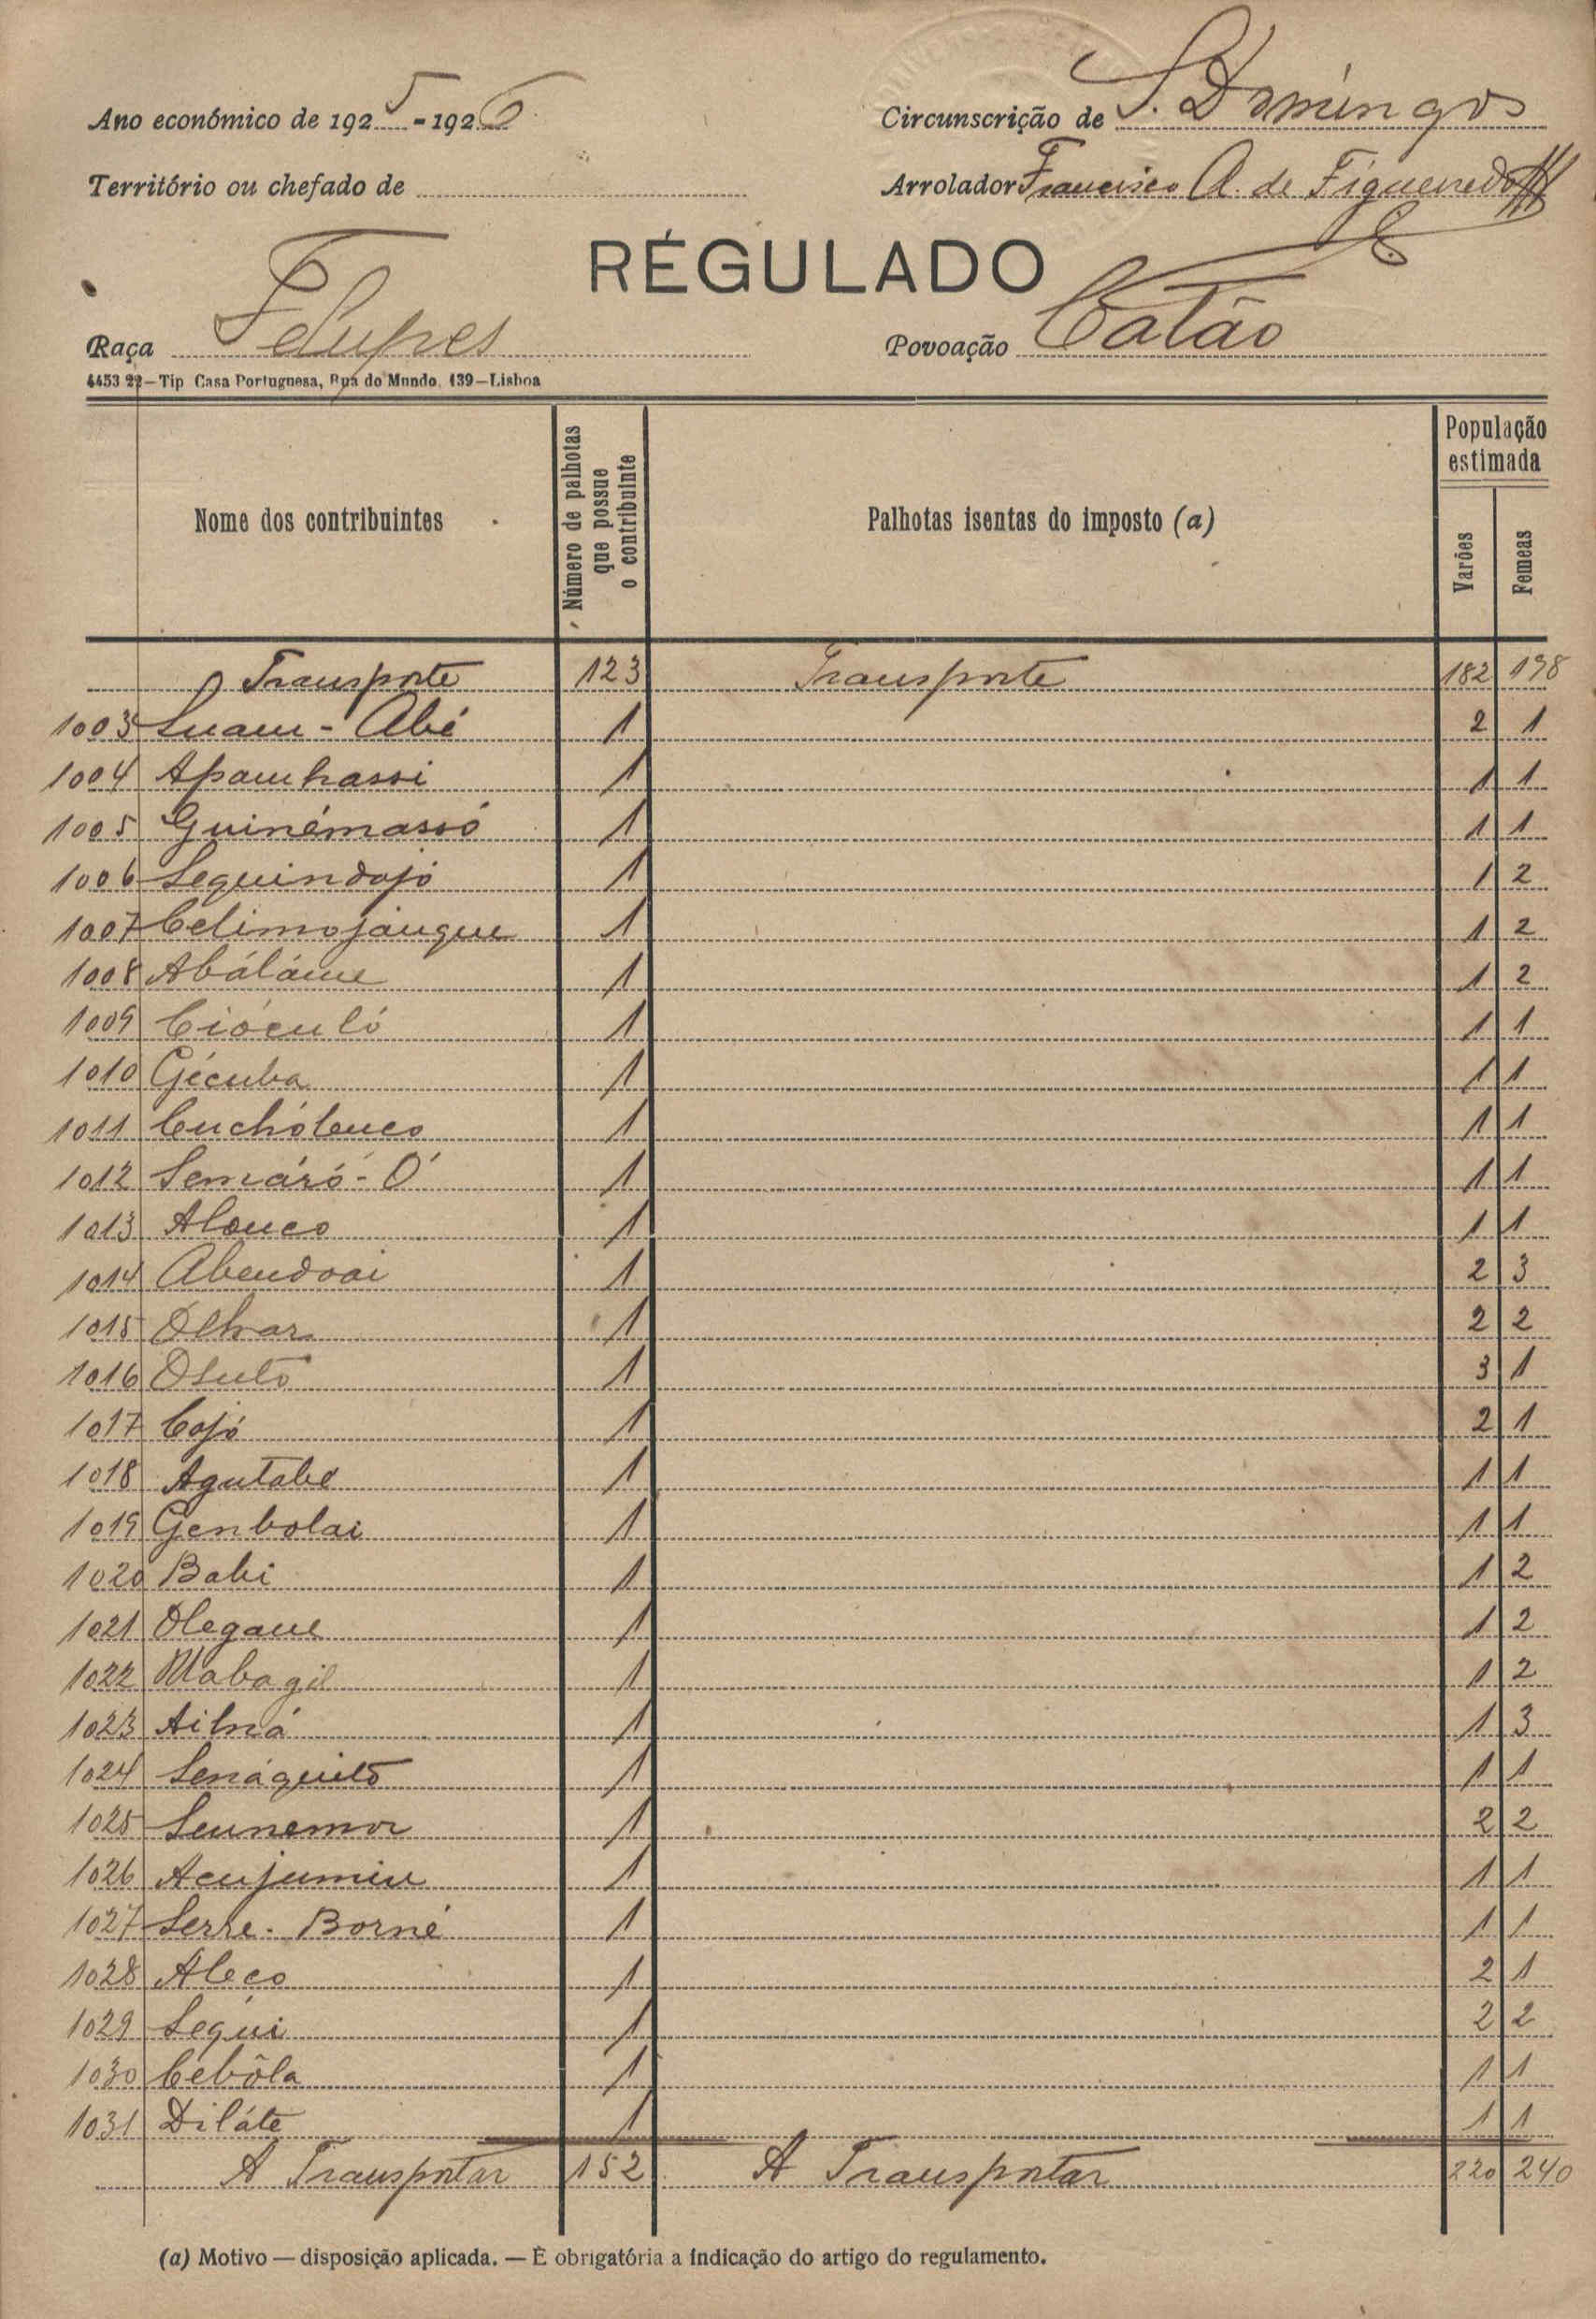 Ano económico de 1925-1926
Circunscrição de S. Domingos
Território ou chefado de
Arrolador Francisco A. de Figueiredo
RÉGULADO
Raça Felupes
Povoação Catão
4453 22—Tip Casa Portuguesa, Rua do Mundo, 139—Lisboa
Nome dos contribuintes
Número de palhotas que possue o contribuinte
Palhotas isentas do imposto (a)
População estimada
Varões
Femeas
Transporte 123 Transporte 182 198
1003 Luam-Abé 1 2 1
1004 Apamhassi 1 1 1
1005 Guinémassó 1 1 1
1006 Sequindojó 1 1 2
1007 Celimojangue 1 1 2
1008 Abáláme 1 1 2
1009 Cióculó 1 1 1
1010 Gécuba 1 1 1
1011 1 1 1
1012 Semáró-Ó 1 1 1
1013 Alouco 1 1 1
1014 Abendoai 1 2 3
1015 1 2 2
1016 Osuto 1 3 1
1017 Cojó 1 2 1
1018 Agutabe 1 1 1
1019 Genbolai 1 1 1
1020 Babi 1 1 2
1021 Olegaue 1 1 2
1022 Mabagil 1 1 2
1023 Ailná 1 1 3
1024 Senáquitó 1 1 1
1025 Seunemor 1 2 2
1026 Acujumiu 1 1 1
1027 Serre-Borné 1 1 1
1028 Aleco 1 2 1
1029 Segui 1 2 2
1030 Cebôla 1 1 1
1031 Diláte 1 1 1
A Transportar 152 A Transportar 220 240
(a) Motivo — disposição aplicada. — É obrigatória a indicação do artigo do regulamento.